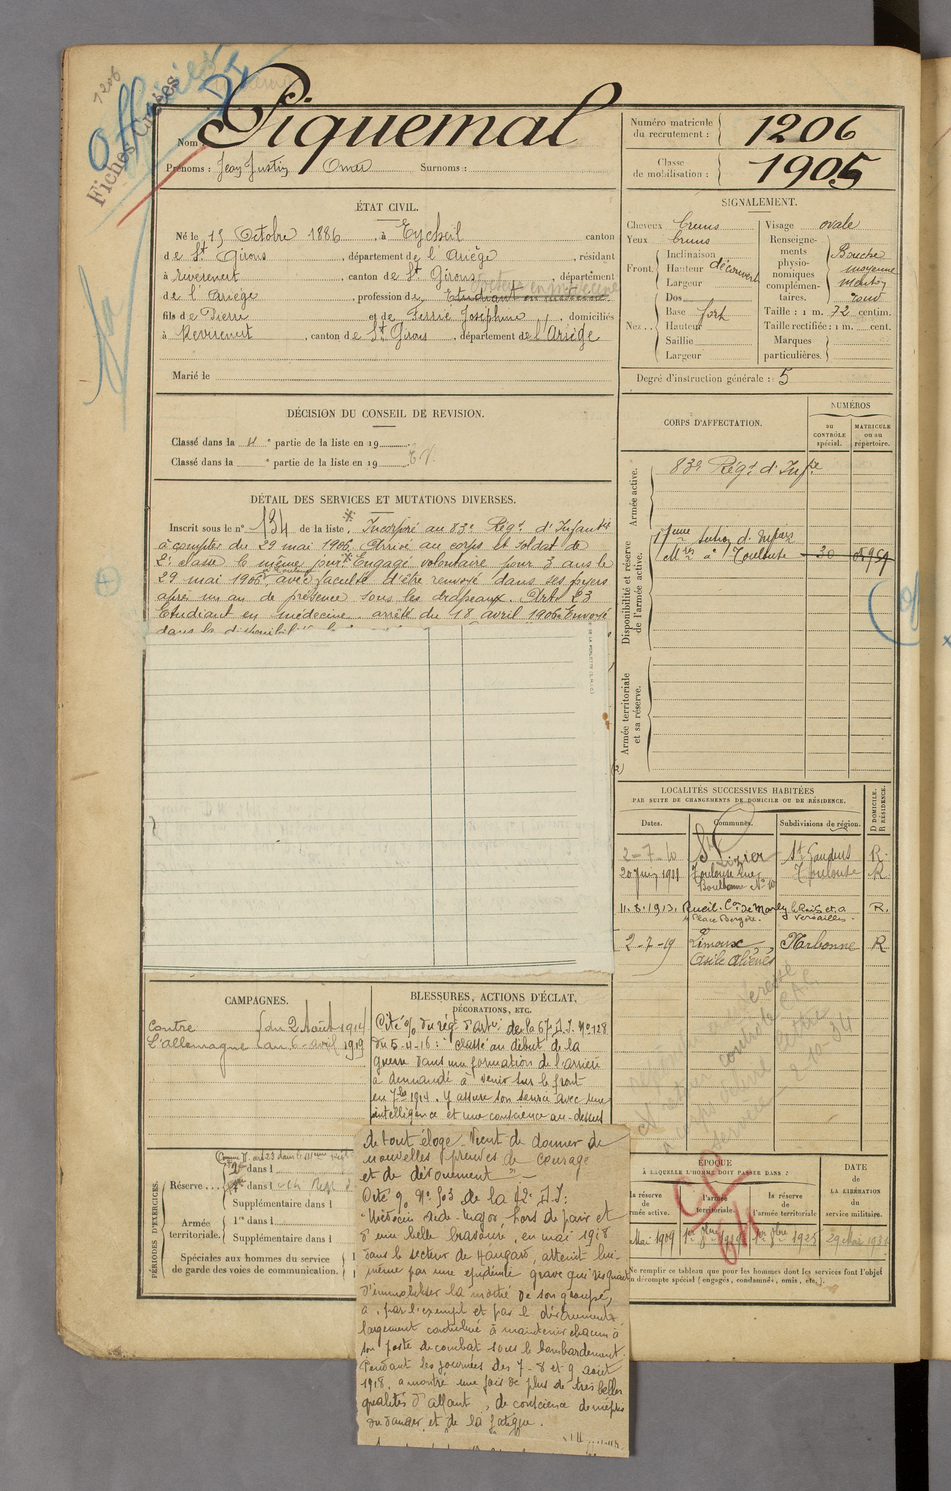 1206
Officier
Fiches Croisées
Nom Piquemal
Prénoms : Jean Justin Omer Surnoms :
Numéro matricule
du recrutement : 1206
Classe
de mobilisation : 1905
ÉTAT CIVIL.
Né le 15 Octobre 1886, à Eycheil canton
de St Girons, département de l'Ariège, résidant
à Riverenert, canton de St Girons, département
docteur en médecine
de l'Ariège, profession de Etudiant en médecine
fils de Pierre et de Serrie Joséphine, domiciliés
à Riverenert, canton de St Girons, département de l'Ariège
Marié le
SIGNALEMENT.
Cheveux bruns
Yeux bruns
Front. Inclinaison
Hauteur découvert
Largeur
Nez. Dos
Base fort
Hauteur
Saillie
Largeur
Visage ovale
Renseignements
physionomiques
complémentaires.
Bouche
moyenne
menton
rond
Taille : 1 m. 72 centim.
Taille rectifiée : 1 m. cent.
Marques
particulières.
Degré d'instruction générale : 5
DÉCISION DU CONSEIL DE REVISION.
Classé dans la 4e partie de la liste en 19
Classé dans la e partie de la liste en 19 EV
CORPS D'AFFECTATION.
NUMÉROS
au
CONTRÔLE
spécial.
MATRICULE
ou au
répertoire.
Armée active.
83e Régt d'Infie
Disponibilité et réserve
de l'armée active.
17eme Section d'Infirs
Mres à Toulouse 30
Armée territoriale
et sa réserve.
(2)
DÉTAIL DES SERVICES ET MUTATIONS DIVERSES.
Inscrit sous le n° 134 de la liste, Incorporé au 83e Régt d'Infanterie
à compter du 29 mai 1906. Arrivé au corps et soldat de
2e classe le même jour. Engagé volontaire pour 3 ans le
29 mai 1906, avec faculté d'être renvoyé dans ses foyers
après un an de présence sous les drapeaux. Arte 23
Etudiant en médecine. arrêté du 18 avril 1906. Envoyé
dans la disponibilité
LOCALITÉS SUCCESSIVES HABITÉES
PAR SUITE DE CHANGEMENTS DE DOMICILE OU DE RÉSIDENCE.
Dates. Communes. Subdivisions de région. D DOMICILE. R RÉSIDENCE.
2-7-10 St Lizier St Gaudens R.
20 Juin 1911 Toulouse rue Toulouse R.
Boulbonne N° 10
11.8.1913. Rueil. Con de Marly le Roi S. et O. R.
Place Bergère. Versailles.
2-7-19 Limoux Narbonne R
Asile Aliénés
CAMPAGNES.
Contre du 2 Août 1914
l'allemagne au 6 avril 1919
BLESSURES, ACTIONS D'ÉCLAT,
DÉCORATIONS, ETC.
Cité o/ du rég. d'artie de la 67e D.I. N° 128
du 5-11-16 : "Classé au début de la
guerre dans une formation de l'arrière
a demandé à venir sur le front
en 7bre 1914. Y assure son service avec une
intelligence et une conscience au-dessus
de tout éloge. Vient de donner de
nouvelles preuves de courage
et de dévouement"
Cité o/ N° 503 de la 42e D.I :
"Médecin aide-major, hors de pair et
d'une belle bravoure, en mai 1918
dans le secteur de Hangard, atteint lui-
même par une épidémie grave qui risquait
d'immobiliser la moitié de son groupe,
a, par l'exemple et par le dévouement
largement contribué à maintenir chacun à
son poste de combat sous le bombardement.
Pendant les journées des 7-8 et 9 août
1918, a montré une fois de plus de très belles
qualités d'allant, de conscience de mépris
du danger et de la fatigue.
PÉRIODES D'EXERCICES.
Réserve 1re dans l
2e dans l
Supplémentaire dans l
Armée
territoriale. 1re dans l
Supplémentaire dans l
Spéciales aux hommes du service
de garde des voies de communication.
ÉPOQUE
À LAQUELLE L'HOMME DOIT PASSER DANS :
la réserve
armée active.
l'armée
territoriale.
la réserve
de l'armée territoriale
DATE
DE LA
LIBÉRATION
du
service militaire.
Mai 1909
1919
1925
Ne remplir ce tableau que pour les hommes dont les services font l'objet
d'un décompte spécial (engagés, condamnés, omis, etc.).